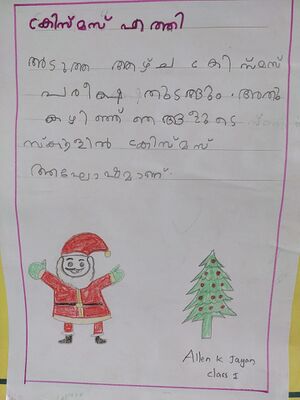 ക്രിസ്മസ് എത്തി
അടുത്ത ആഴ്ച ക്രിസ്മസ്
പരീക്ഷ തുടങ്ങും. അതു
കഴിഞ്ഞ് ഞങ്ങളുടെ
സ്കൂളിൽ ക്രിസ്മസ്
ആഘോഷമാണ്.
Allen K Jayan
class I